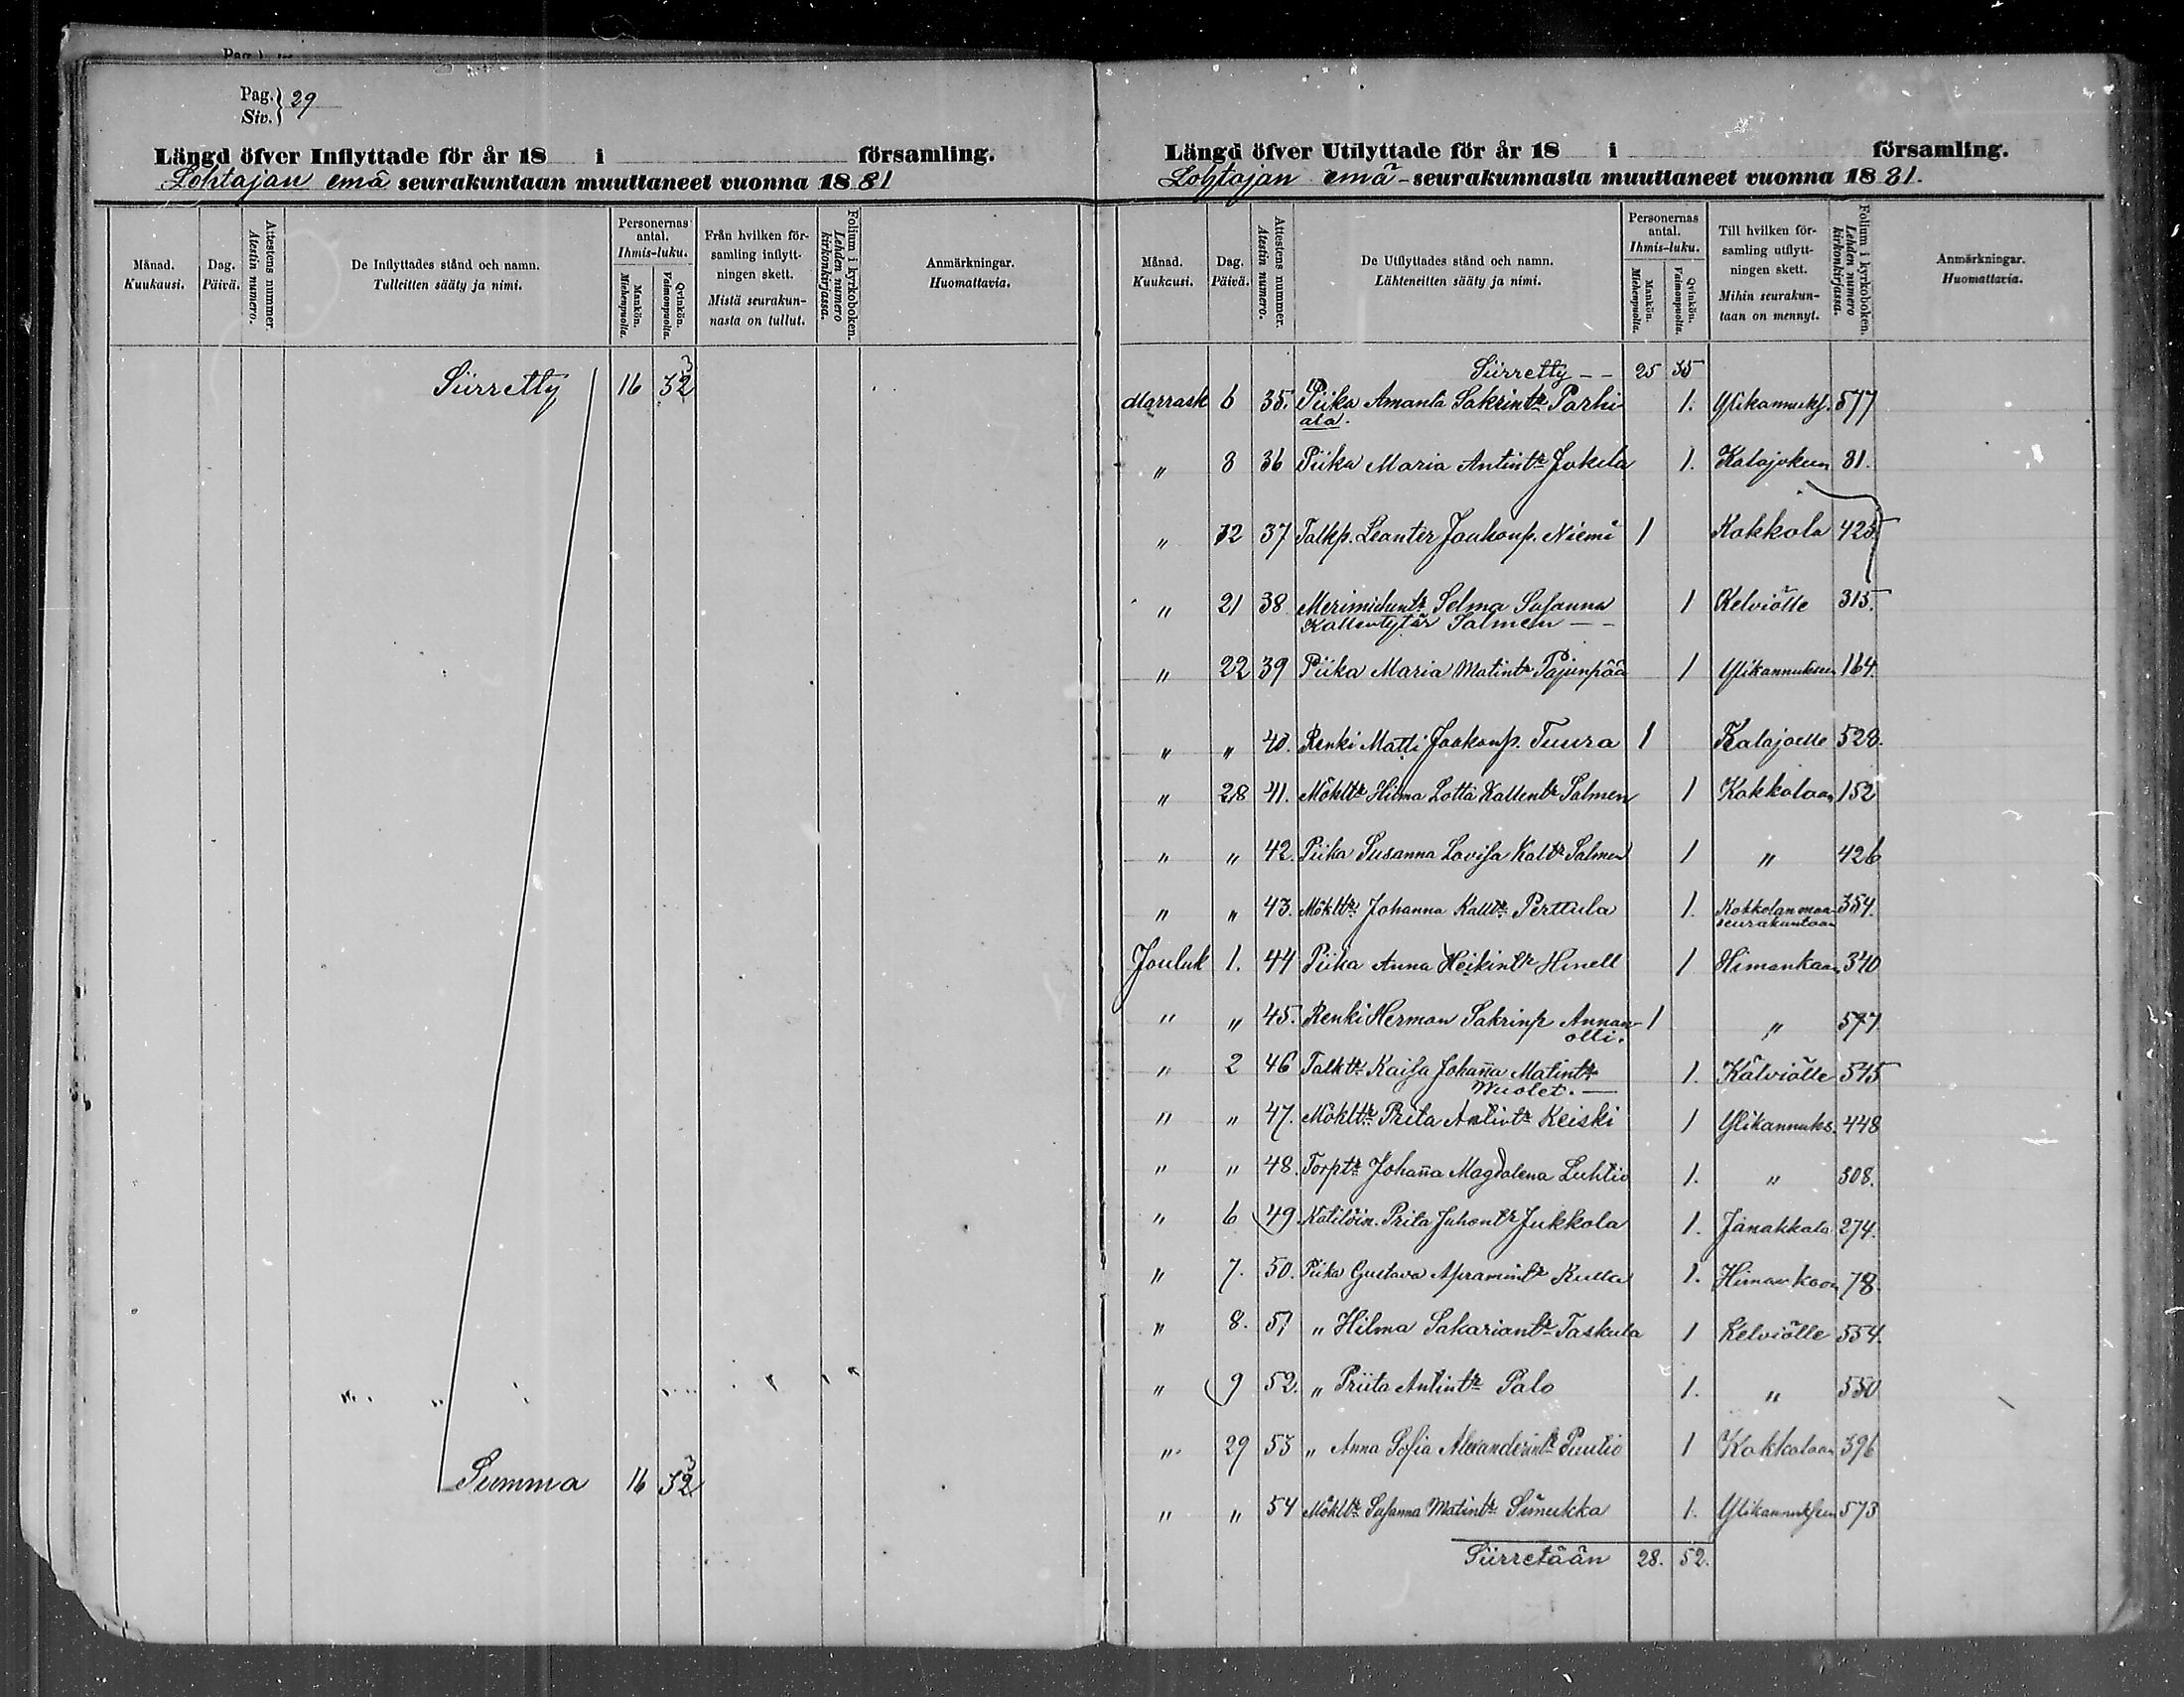 Pag. } 29
Siv. }
Längd öfver Inflyttade för år 18 i församling.
Lohtajan emä seurakuntaan muuttaneet vuonna 1881
Månad. Kuukausi.
Dag. Päivä.
Attestens nummer. Atestin numero.
De Inflyttades stånd och namn. Tulleitten sääty ja nimi.
Personernas antal. Ihmis-luku.
Mankön. Miehenpuolia.
Qvinkön. Vaimonpuolia.
Från hvilken församling inflyttningen skett. Mistä seurakunnasta on tullut.
Folium i kyrkoboken. Lehden numero kirkonkirjassa.
Anmärkningar. Huomattavia.
Siirretty 16 32 3
Summa 16 32 3
Längd öfver Utflyttade för år 18 i församling.
Lohtajan emä-seurakunnasta muuttaneet vuonna 1881.
Månad. Kuukausi.
Dag. Päivä.
Attestens nummer. Atestin numero.
De Utflyttades stånd och namn. Lähteneitten sääty ja nimi.
Personernas antal. Ihmis-luku.
Mankön. Miehenpuolia.
Qvinkön. Vaimonpuolia.
Till hvilken församling utflyttningen skett. Mihin seurakuntaan on mennyt.
Folium i kyrkoboken. Lehden numero kirkonkirjassa.
Anmärkningar. Huomattavia.
Siirretty -- 25 35
Marrask 6 35. Piika Amanta Sakrintr Parhi 1. Ylikannuks. 577
ala.
" 8 36 Piika Maria Antintr Jokela 1. Kalajokeen 81.
" 12 37 Talkp. Leanter Jaakonp. Niemi 1 Kokkola 425
" 21 38. Selma Susanna 1 Kelviölle 315.
Kallentytär Salmen --
" 22 39 Piika Maria Matintr Pajunpää 1 Ylikannuksen 164.
" " 40. Renki Matti Jaakonp. Tuura 1 Kalajoelle 528.
" 28 41. Mökltr Hilma Lotta Kallentr Salmen 1 Kokkolaan 152
" " 42. Piika Susanna Lovisa Kaltr Salmen 1 " 426
" " 43. Möklttr Johanna Kalltr Perttula 1. Kokkolan maa- 354.
seurakuntaan
Jouluk 1. 44 Piika Anna Heikintr Hinell 1 Himankaan 340
" " 45. Renki Herman Sakrinp Annan- 1 " 577
olli.
" 2 46 Talktr Kaisa Johanna Matintr 1. Kälviölle 545
Wuolet. —
" " 47. Möklttr Priita Antintr Keiski 1 Ylikannuks. 448
" " 48. Torptr Johanna Magdalena Luhtio 1. " 308.
" 6 49. Kätilöin. Prita Juhontr Jukkola 1. Janakkala 274.
" 7. 50. Piika Gustava Apramintr Kulla 1. Himankaan 78.
" 8. 51 " Hilma Sakariantr Taskula 1 Kelviölle 554.
" 9 52. " Priita Antintr Palo 1. " 550
" 29 53 " Anna Sofia Alexanderintr Puutio 1 Kokkolaan 396
" " 54 Möklttr Susanna Matintr Simukka 1. Ylikannuksen 573
Siirretään 28. 52.